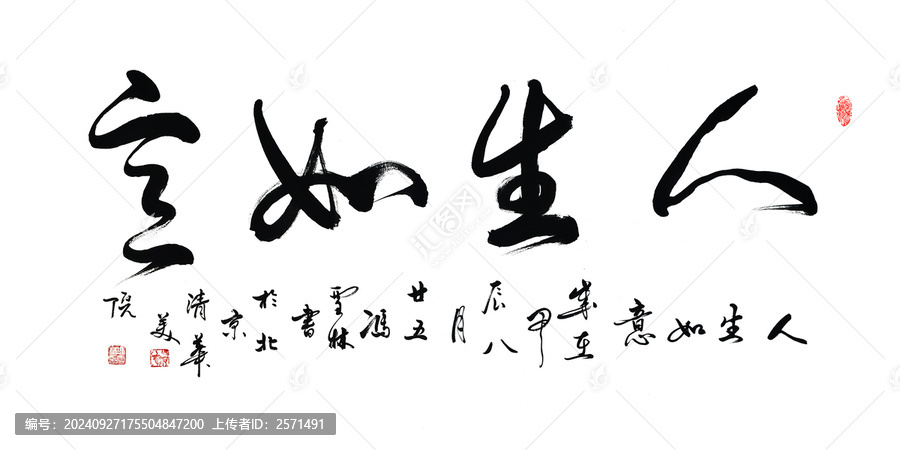 人生如意
人生如意歲在甲辰八月廿五馮雪林書於北京清華美院
编号：20240927175504847200 上传者ID：2571491